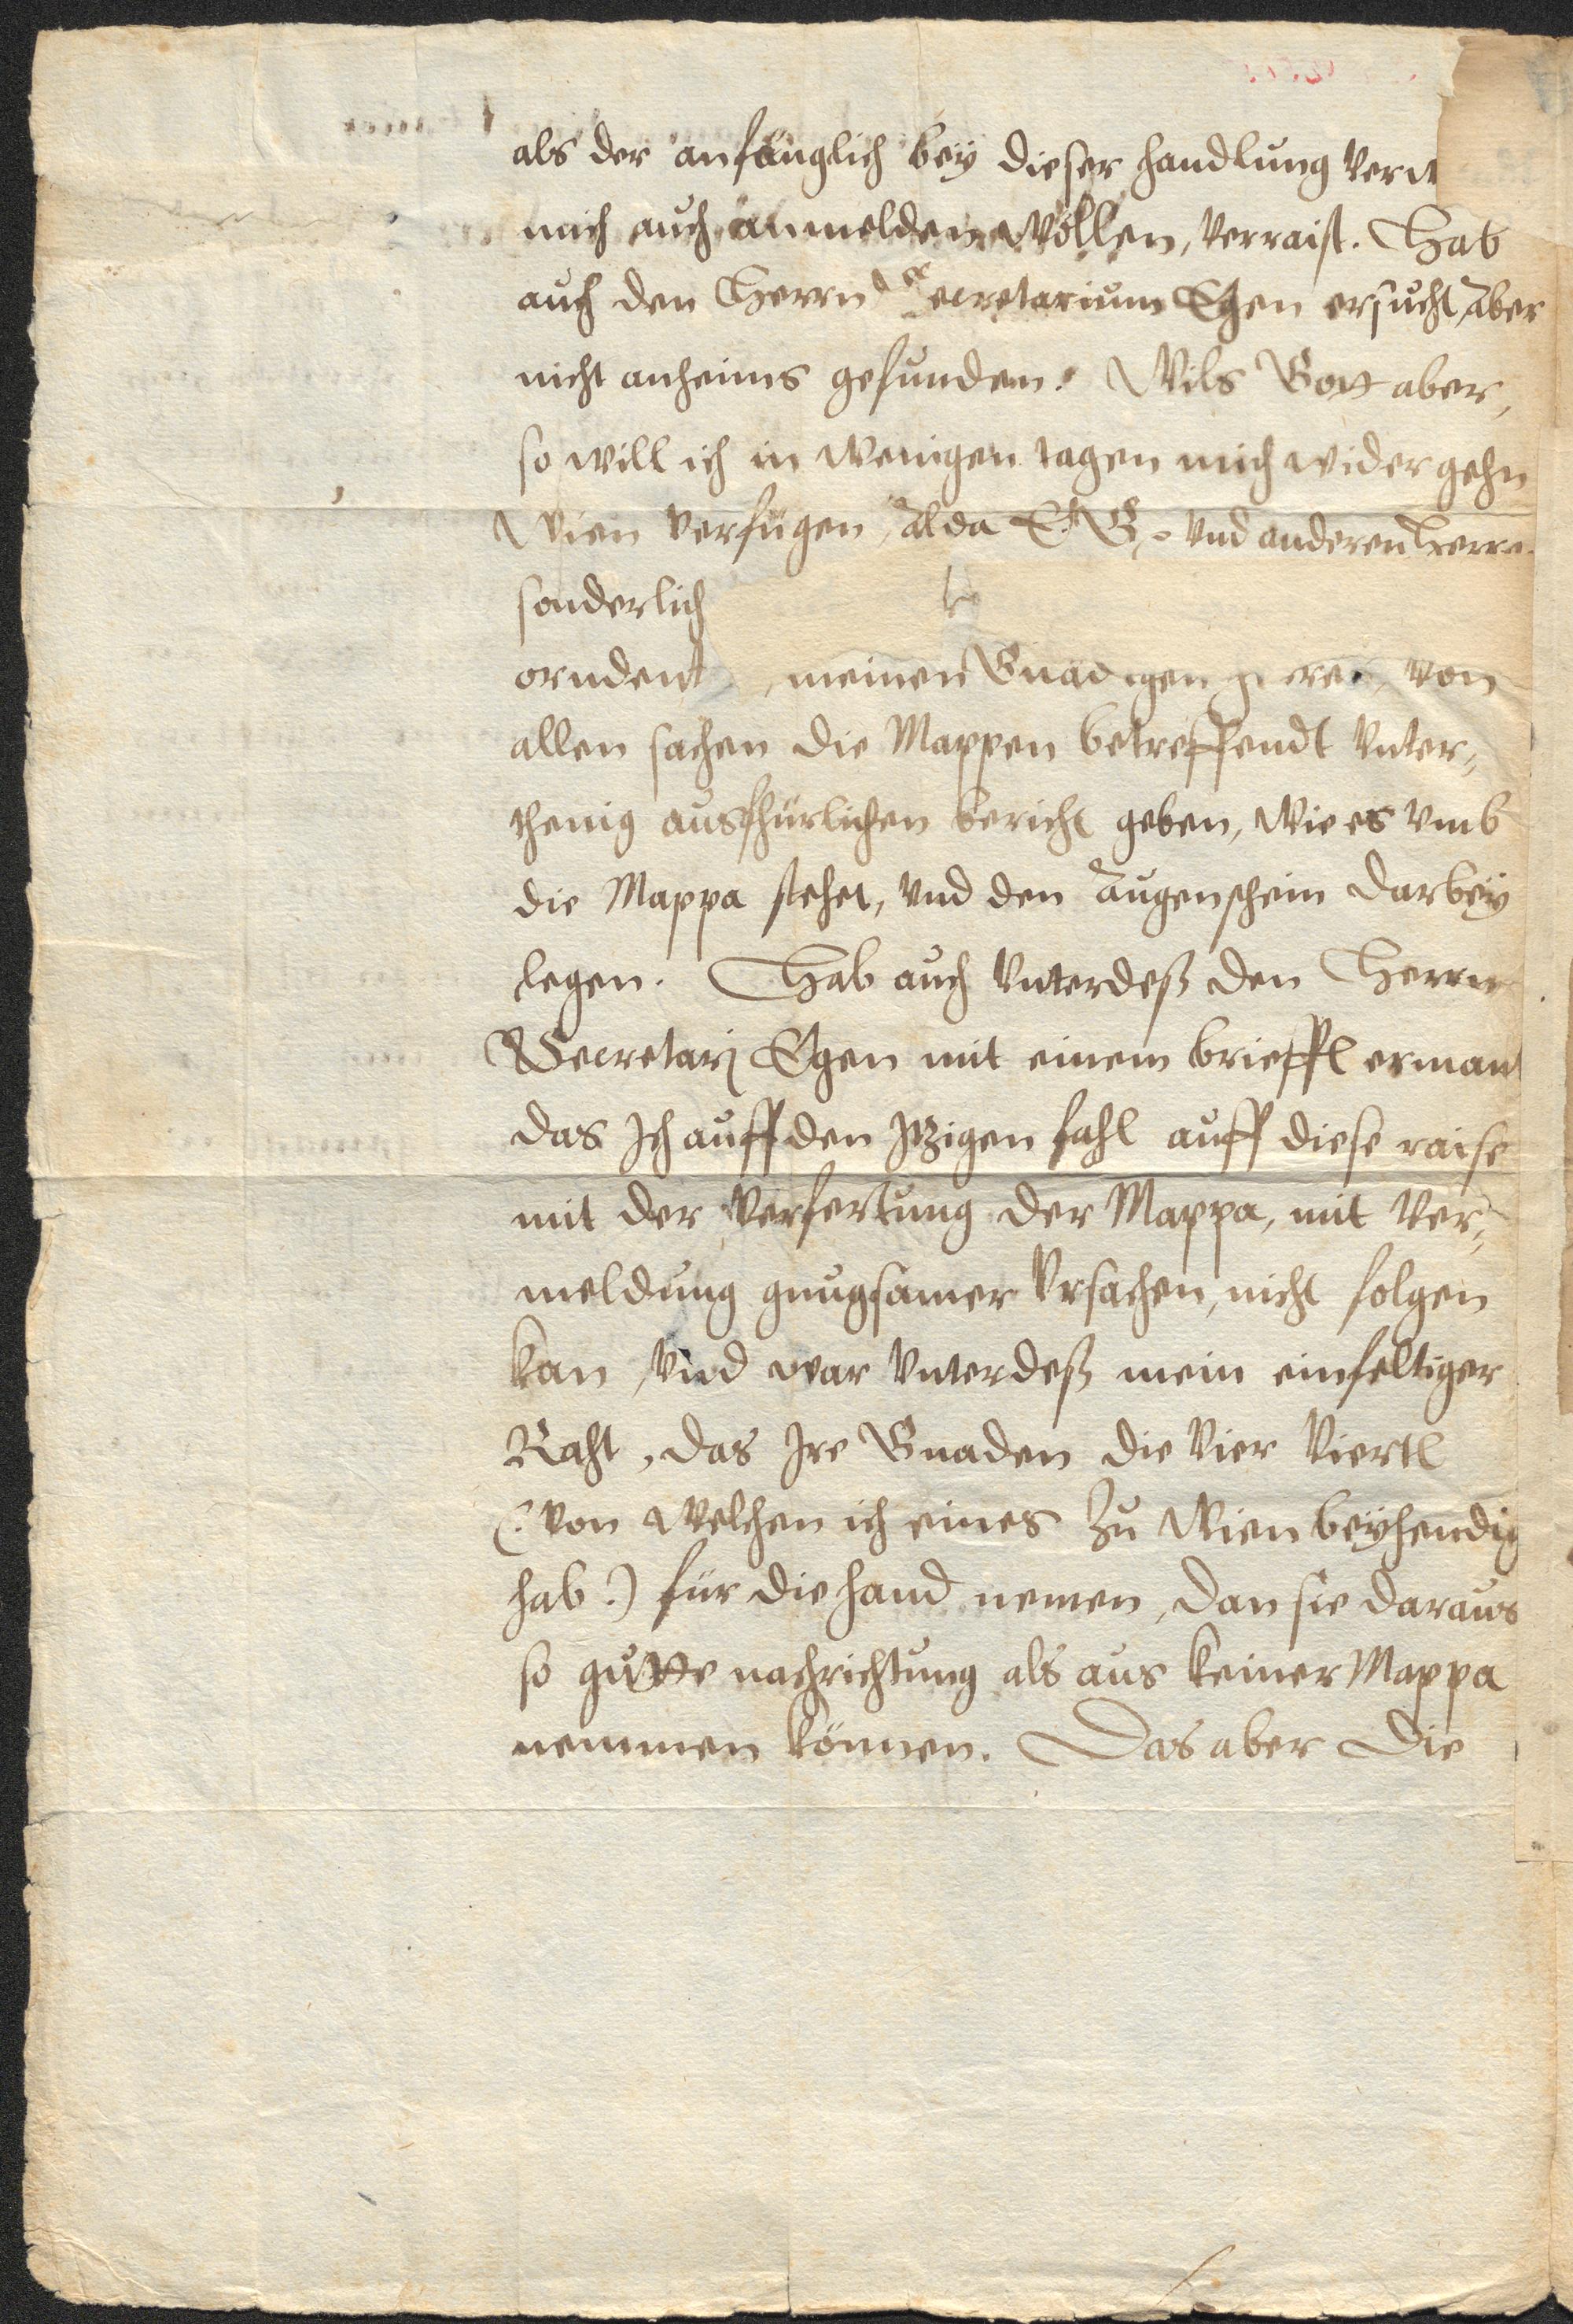 als der anfänglich bey dieser handlung
mich auch anmelden wöllen, verraist. Hab
auch den Herrn Secretarium Egen ersucht, aber
nicht anheims gefunden. Wils Gott aber,
so will ich in wenigen tagen mich wider gehn
Wien verfügen, alda E. G. vnd anderen Herrn
sonderlich
meinen Gnädigen von
allen sachen die Mappen betreffendt vnter,,
thenig ausfhürlichen bericht geben, wie es vmb
die Mappa stehet, vnd den augenschein darbey
legen. Hab auch vnterdeß den Herrn
Secretarj Egen mit einem brieffl ermant
das Ich auff den Jtzigen fahl auff diese raise
mit der verfertung der Mappa, mit ver,,
meldung gnugsamer vrsachen, nicht folgen
kan, vnd war vnterdeß mein einfeltiger
Raht, das Ire Gnaden die vier viertl
(: von welchen ich eines zu Wien beyhendig
hab :) für die hand nemen, dan sie daraus
so gutte nachrichtung als aus keiner Mappa
nemmen können. Das aber die